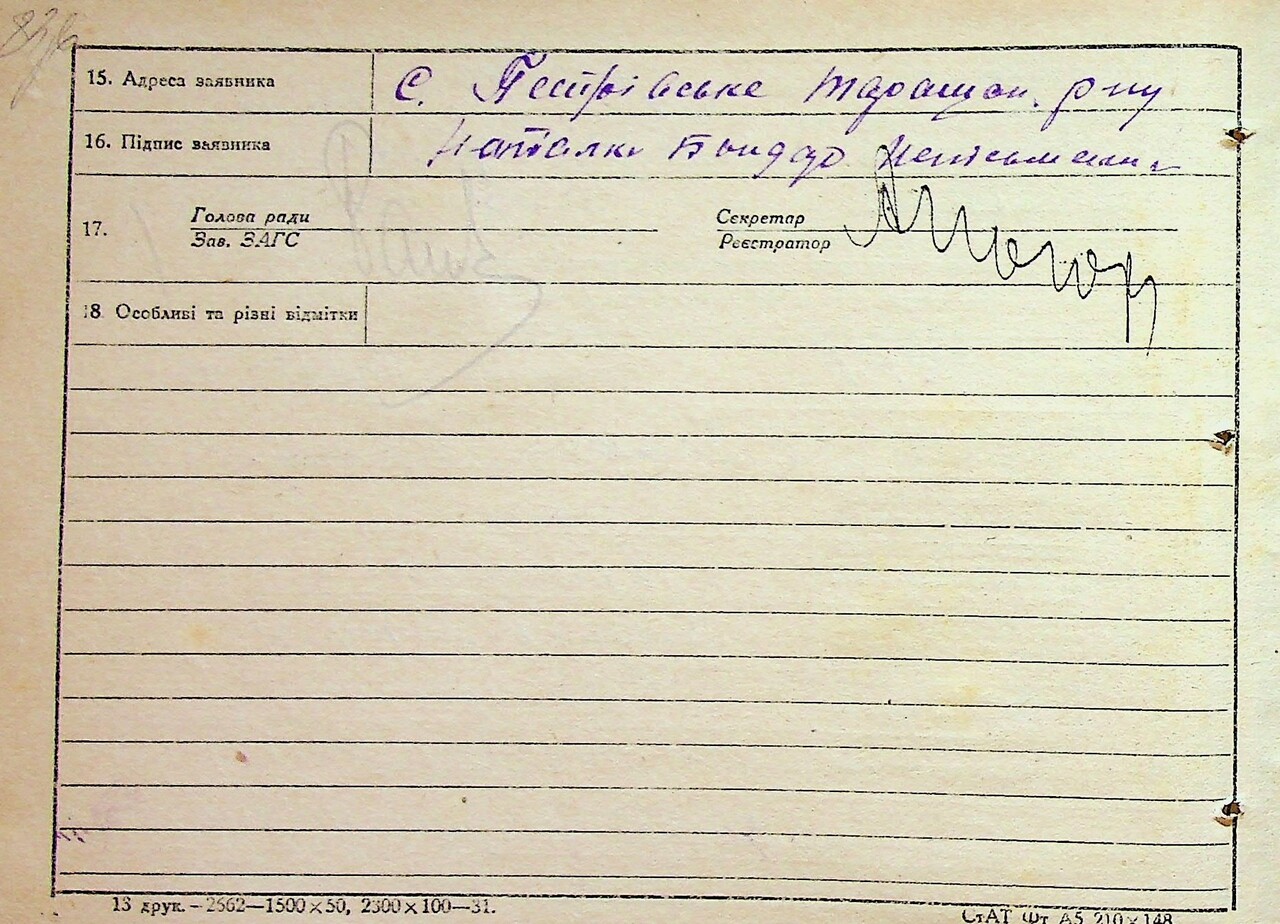 83
15. Адреса заявника с. Пстрівське Таращан. р-ну
16. Підпис заявника Наталка Бондар неписьменна
17. Голова ради Секретар
Зав. ЗАГС Реєстратор
18. Особливі та різні відмітки
13 друк. - 2562—1500×50, 2300×100—31.
СтАТ Фт А5 210×148